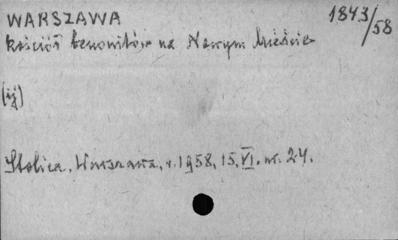 WARSZAWA
1843/58
kościół benonitów na Nowym Mieście
(ij)
Stolica, Warszawa, r. 1958, 15. VI. nr. 24.